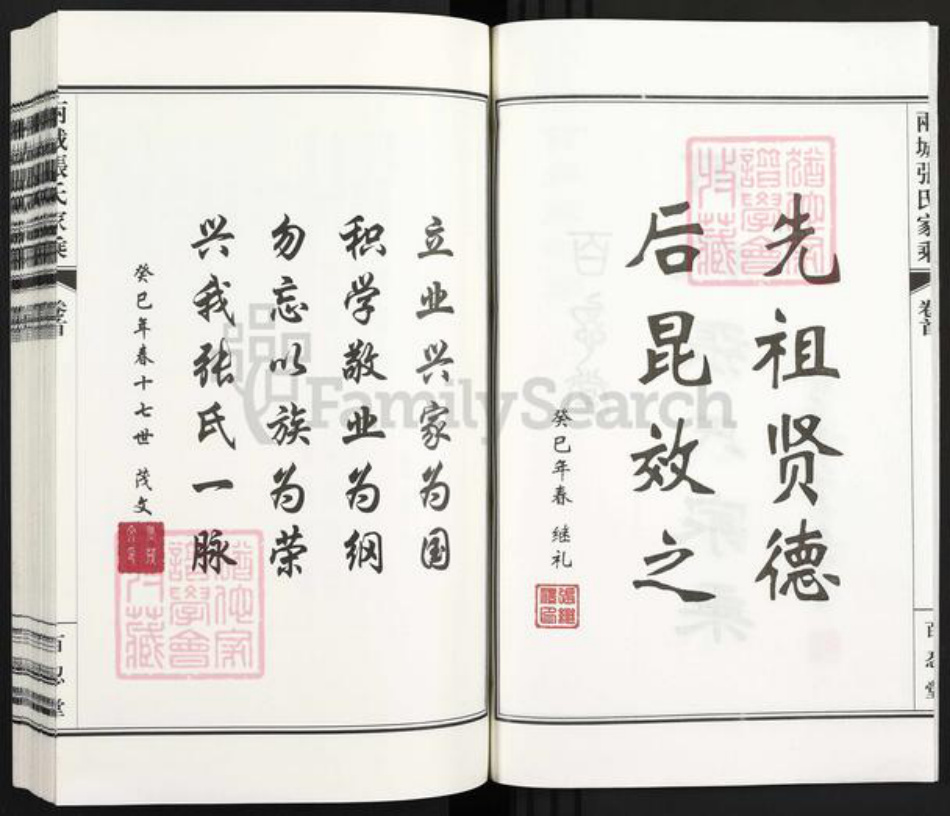 兩城張氏家乘
卷首
百忍堂
先祖贤德
后昆效之
癸巳年春 继礼
立业兴家为国
积学敬业为纲
勿忘以族为荣
兴我张氏一脉
癸巳年春十七世 茂文
兩城張氏家乘
卷首
百忍堂
FamilySearch